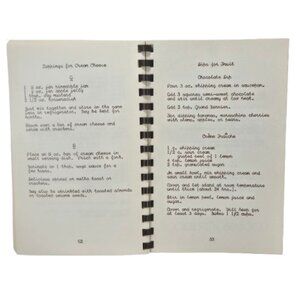 Toppings for Cream Cheese
#
oz. jar pineapple jam
oz. jar apple jelly
dry mustard
1/2 oz. horseradish
Just mix together and store in the same
jars or refrigerator. Try be hot for
Pour over a bar of cream cheese and
serve with crackers.
#
Place an 8 oz. bar of cream cheese in
serving dish. Prick with a fork.
Sprinkle on 1 tbsp. soya sauce for a
few hours.
Delicious served on melba toast or
crackers.
May also be sprinkled with toasted almonds
or toasted sesame seeds.
52
Dips for Fruit
Chocolate Dip
Pour 3 oz. whipping cream in saucepan.
Add 3 squares semi-sweet chocolate
and stir until creamy at low heat.
Add 3 tbsp. Grand Marnier.
For dipping bananas, maraschino cherries
with stems, apples, or pears.
Crème Fraîche
1 c. whipping cream
1/2 c. sour cream
grated peel of 1 lemon
lemon juice
sugar
In small bowl, mix whipping cream and
sour cream until smooth.
Cover and let stand at room temperature
until thick (about 24 hrs.)
Stir in lemon peel, lemon juice and
sugar.
Cover and refrigerate. Will keep for
at least 3 days. Makes 1 1/2 cups.
53